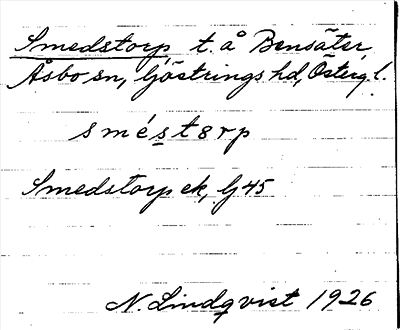 Smedstorp t. å Bensäter
Åsbo sn, Göstrings hd, Österg. l.
sméstɘrp
Smedstorp ek, G 45
N. Lindqvist 1926